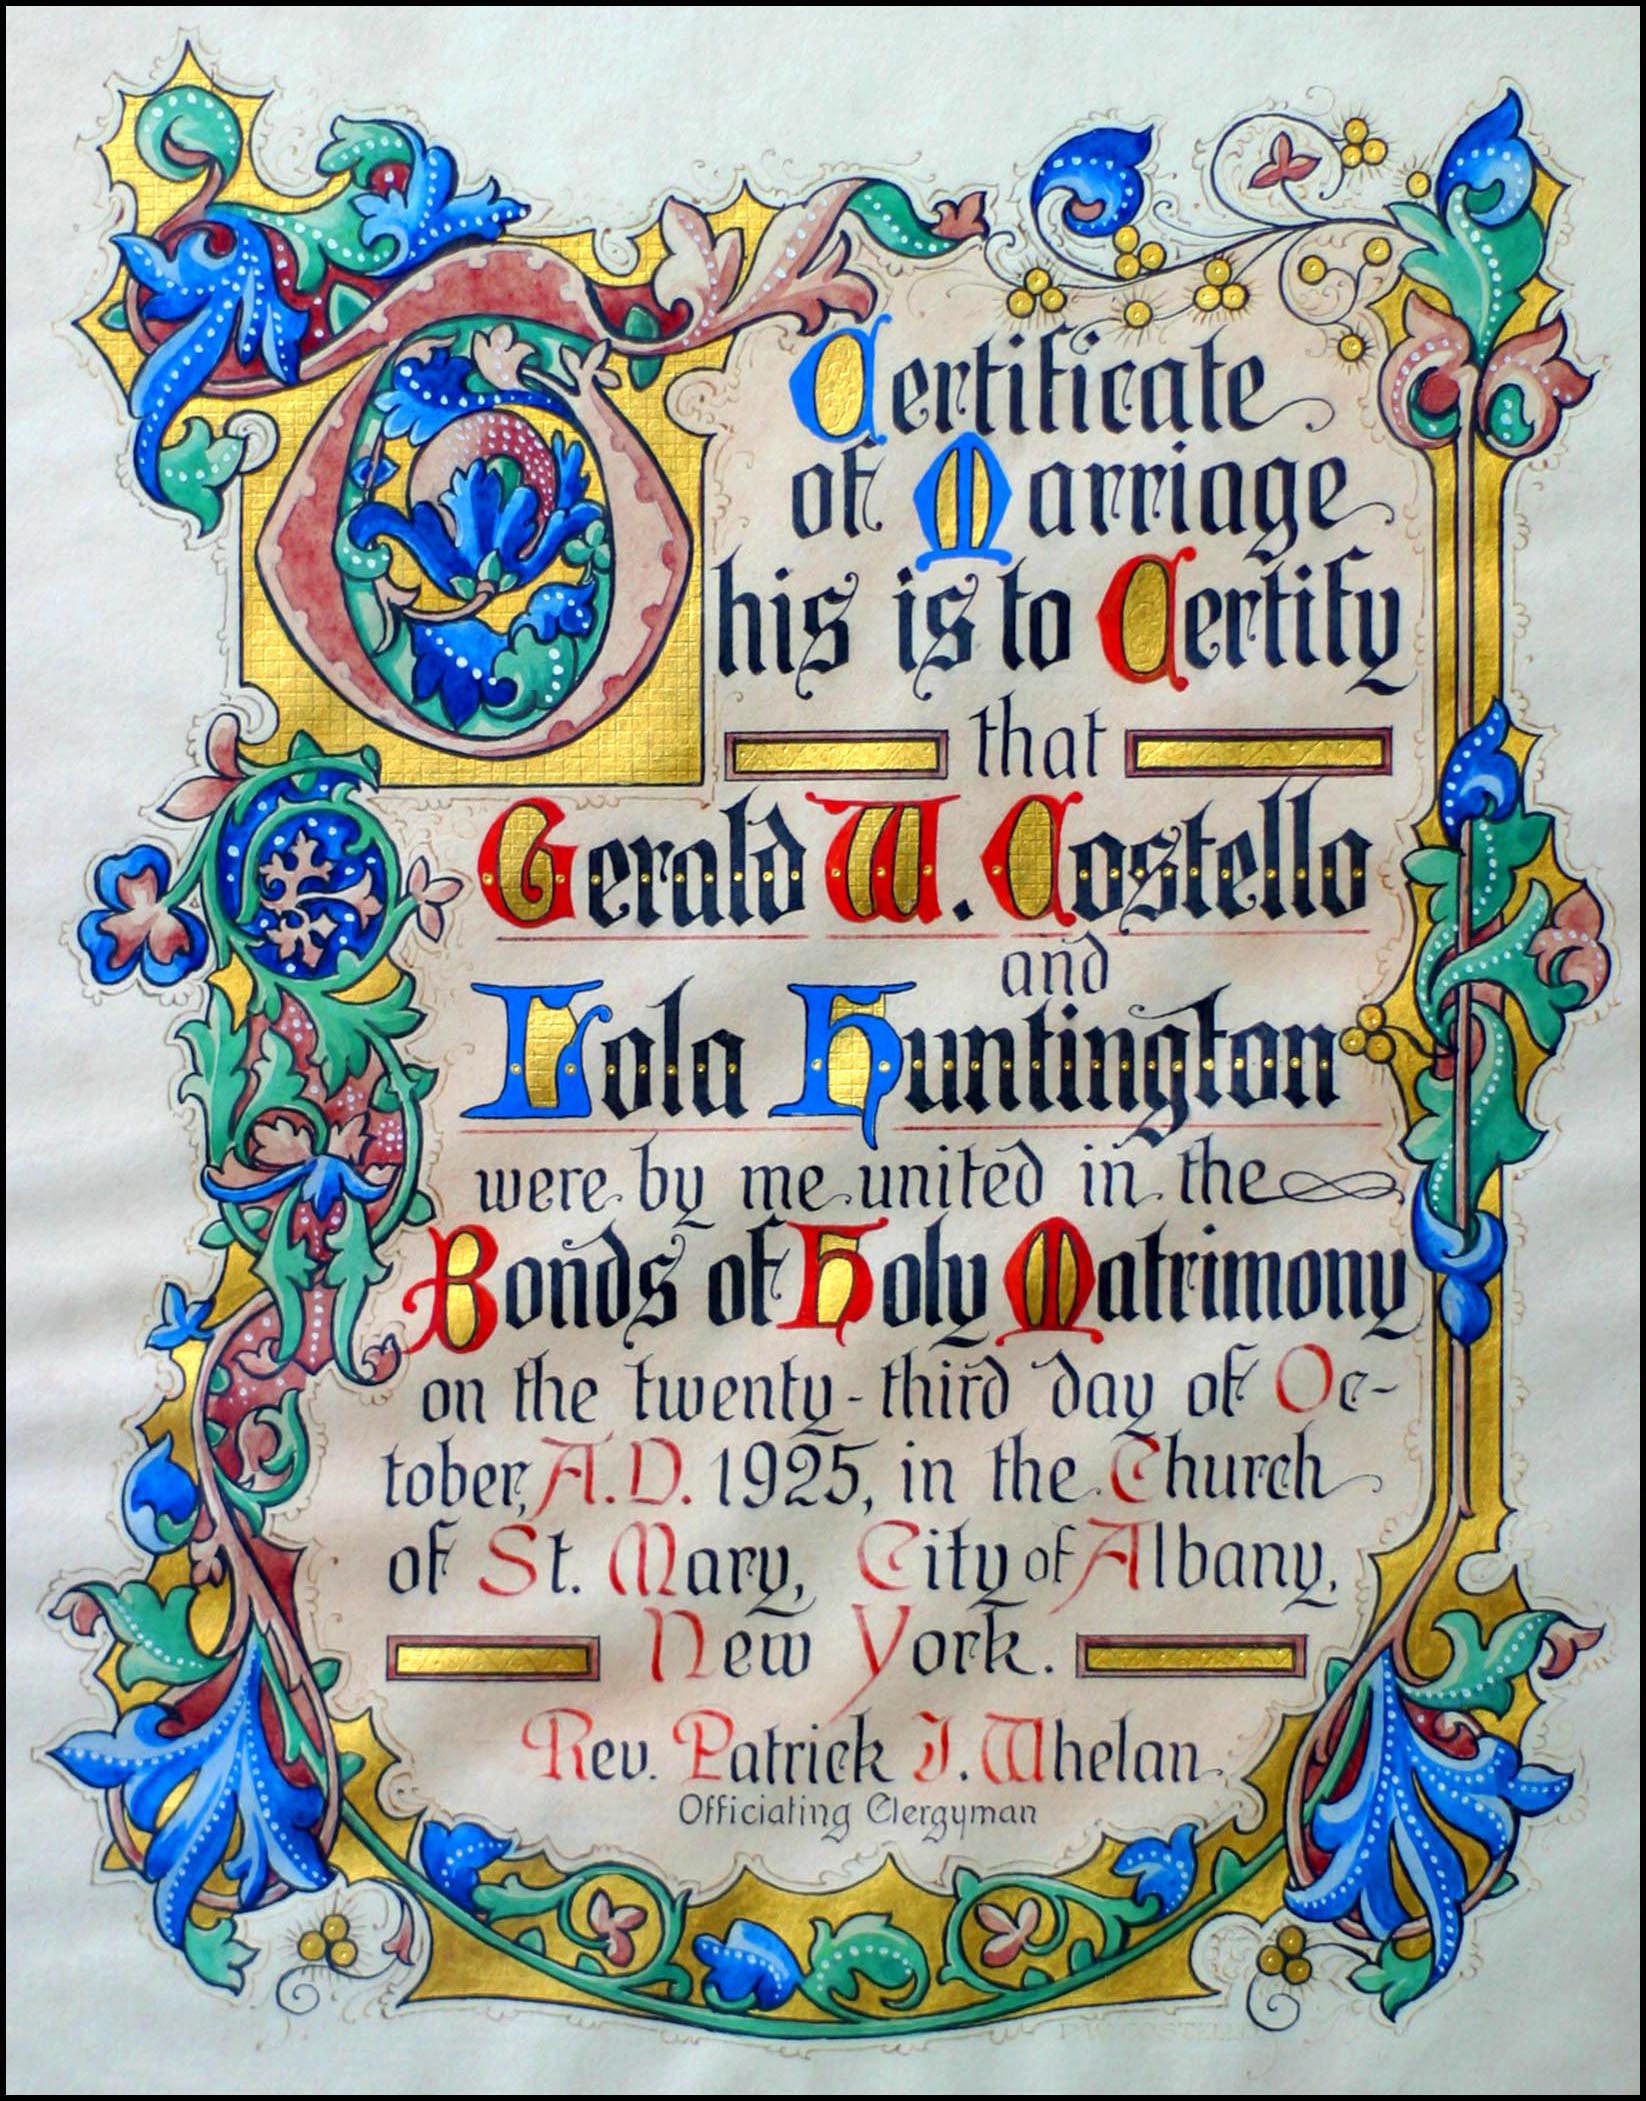 Certificate
of Marriage
This is to Certify
that
Gerald W. Costello
and
Lola Huntington
were by me united in the
Bonds of Holy Matrimony
on the twenty-third day of Oc-
tober, A.D. 1925, in the Church
of St. Mary, City of Albany,
New York.
Rev. Patrick J. Whelan
Officiating Clergyman
P.W. COSTELLO